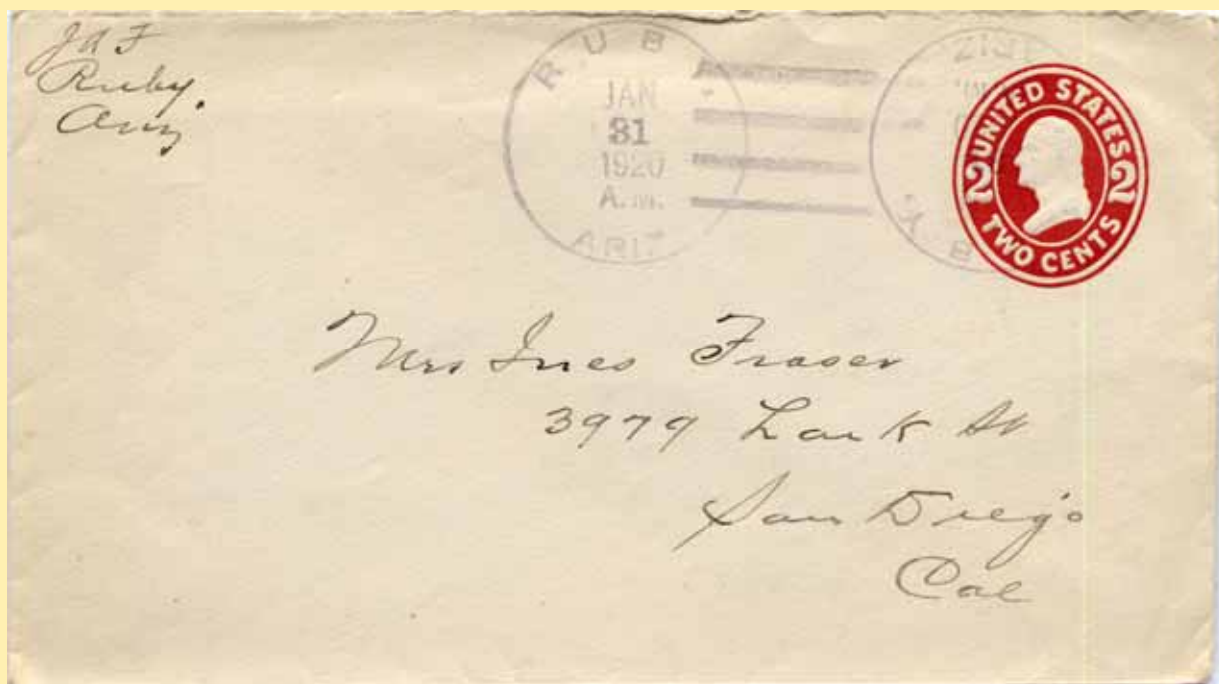 J A F
Ruby.
Ariz
RUB
JAN
31
1920
A.M.
ARIZ
UNITED STATES
2 2
TWO CENTS
Mrs Ines Fraser
3979 Lark St
San Diego
Cal